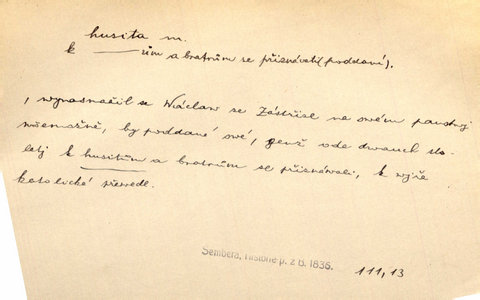 husita m.
k ——— ům a bratrům se přiznávati (poddaní).
, wynasnažil se Wáclaw se Zástřisl na swém panstwj
wšemožně, by poddané swé, genž ode dwauch sto-
letj k husitům a bratrům se přiznáwali, k wjře
katolické převedl.
Šembera, Historie p. z B. 1836.
111, 13